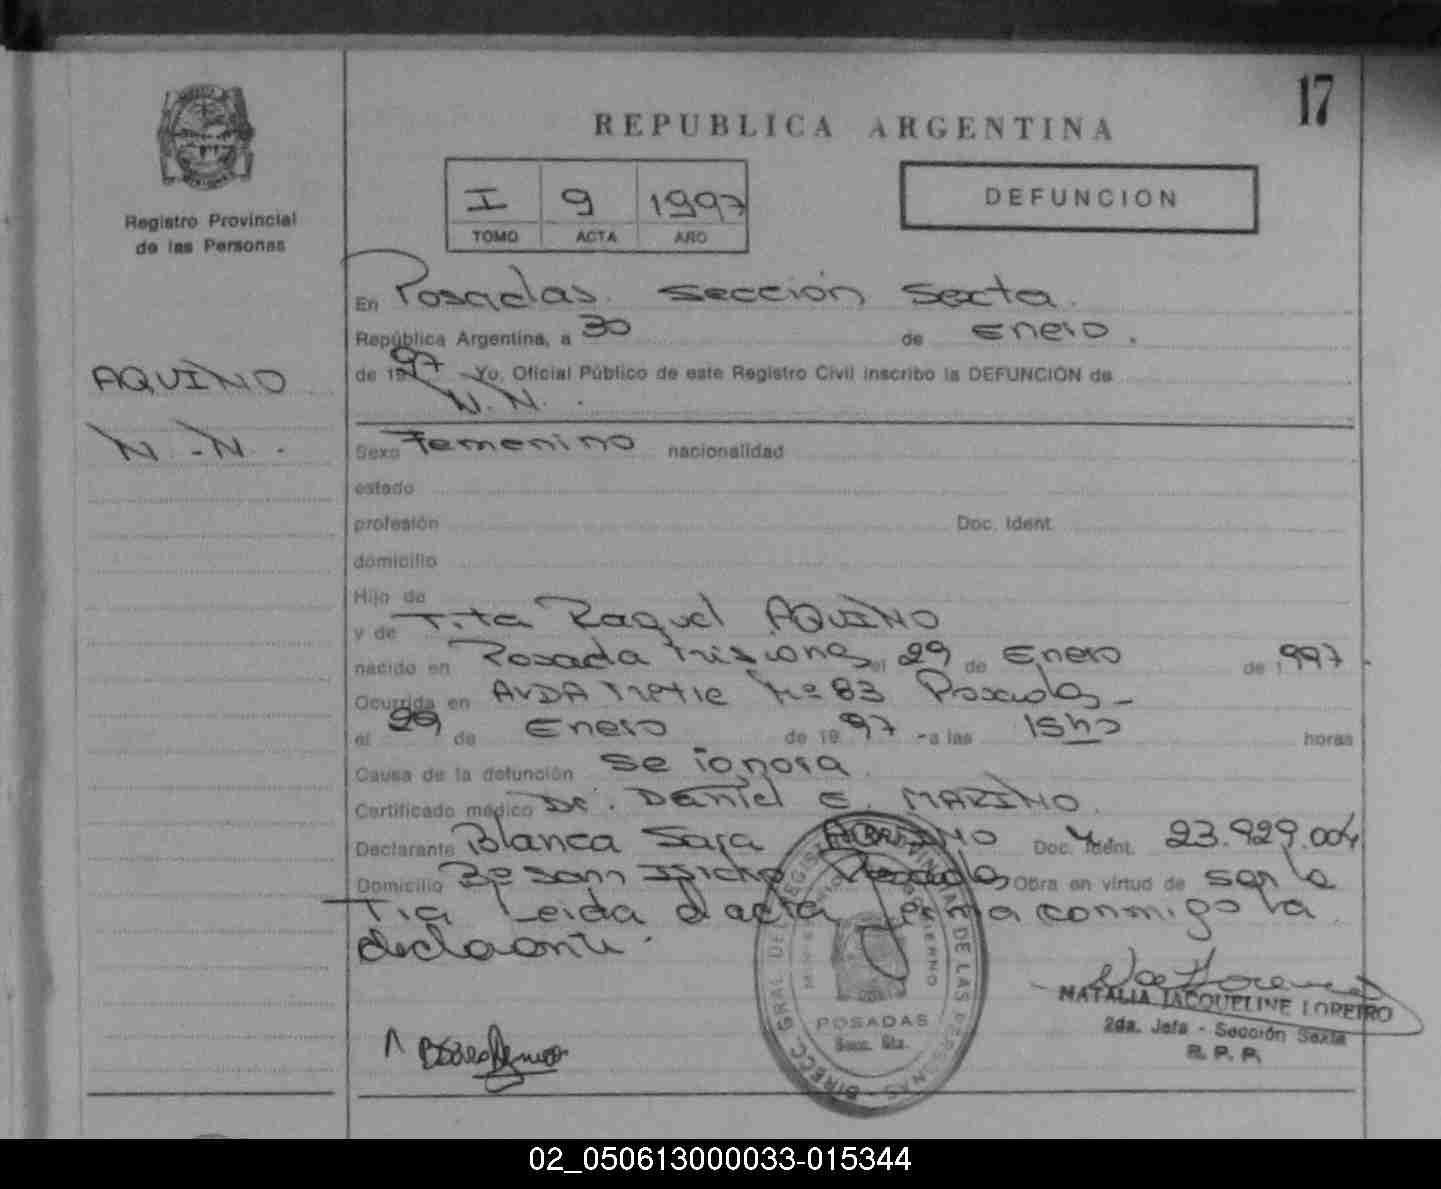 17
REPUBLICA ARGENTINA
Registro Provincial
de las Personas
I 9 1997
TOMO ACTA AÑO
DEFUNCION
En Posadas. sección sexta.
República Argentina, a 30 de Enero.
AQUINO
de 1997 - Yo, Oficial Público de este Registro Civil inscribo la DEFUNCIÓN de
N.N.
N.-N.
Sexo Femenino nacionalidad
estado
profesión Doc. Ident.
domicilio
Hijo de
y de Tita Raquel AQUINO
nacido en Posada Misiones el 29 de Enero de 1997
Ocurrida en AVDA Nº 83 Posadas-
el 29 de Enero de 1997 - a las 15hs horas
Causa de la defunción se ignora
Certificado médico Dr. Daniel E. MARIÑO.
Declarante Blanca Sara AQUINO Doc. Ident. 23.929.004
Domicilio Bº Posadas Obra en virtud de ser la
Tia Leida el acta firma conmigo la
declarante.
DIRECC. GRAL DEL REGISTRO PROVINCIAL DE LAS PERSONAS
POSADAS
Secc. 6ta.
NATALIA JACQUELINE LOREIRO
2da. Jefa - Sección Sexta
R. P. P.
02_050613000033-015344